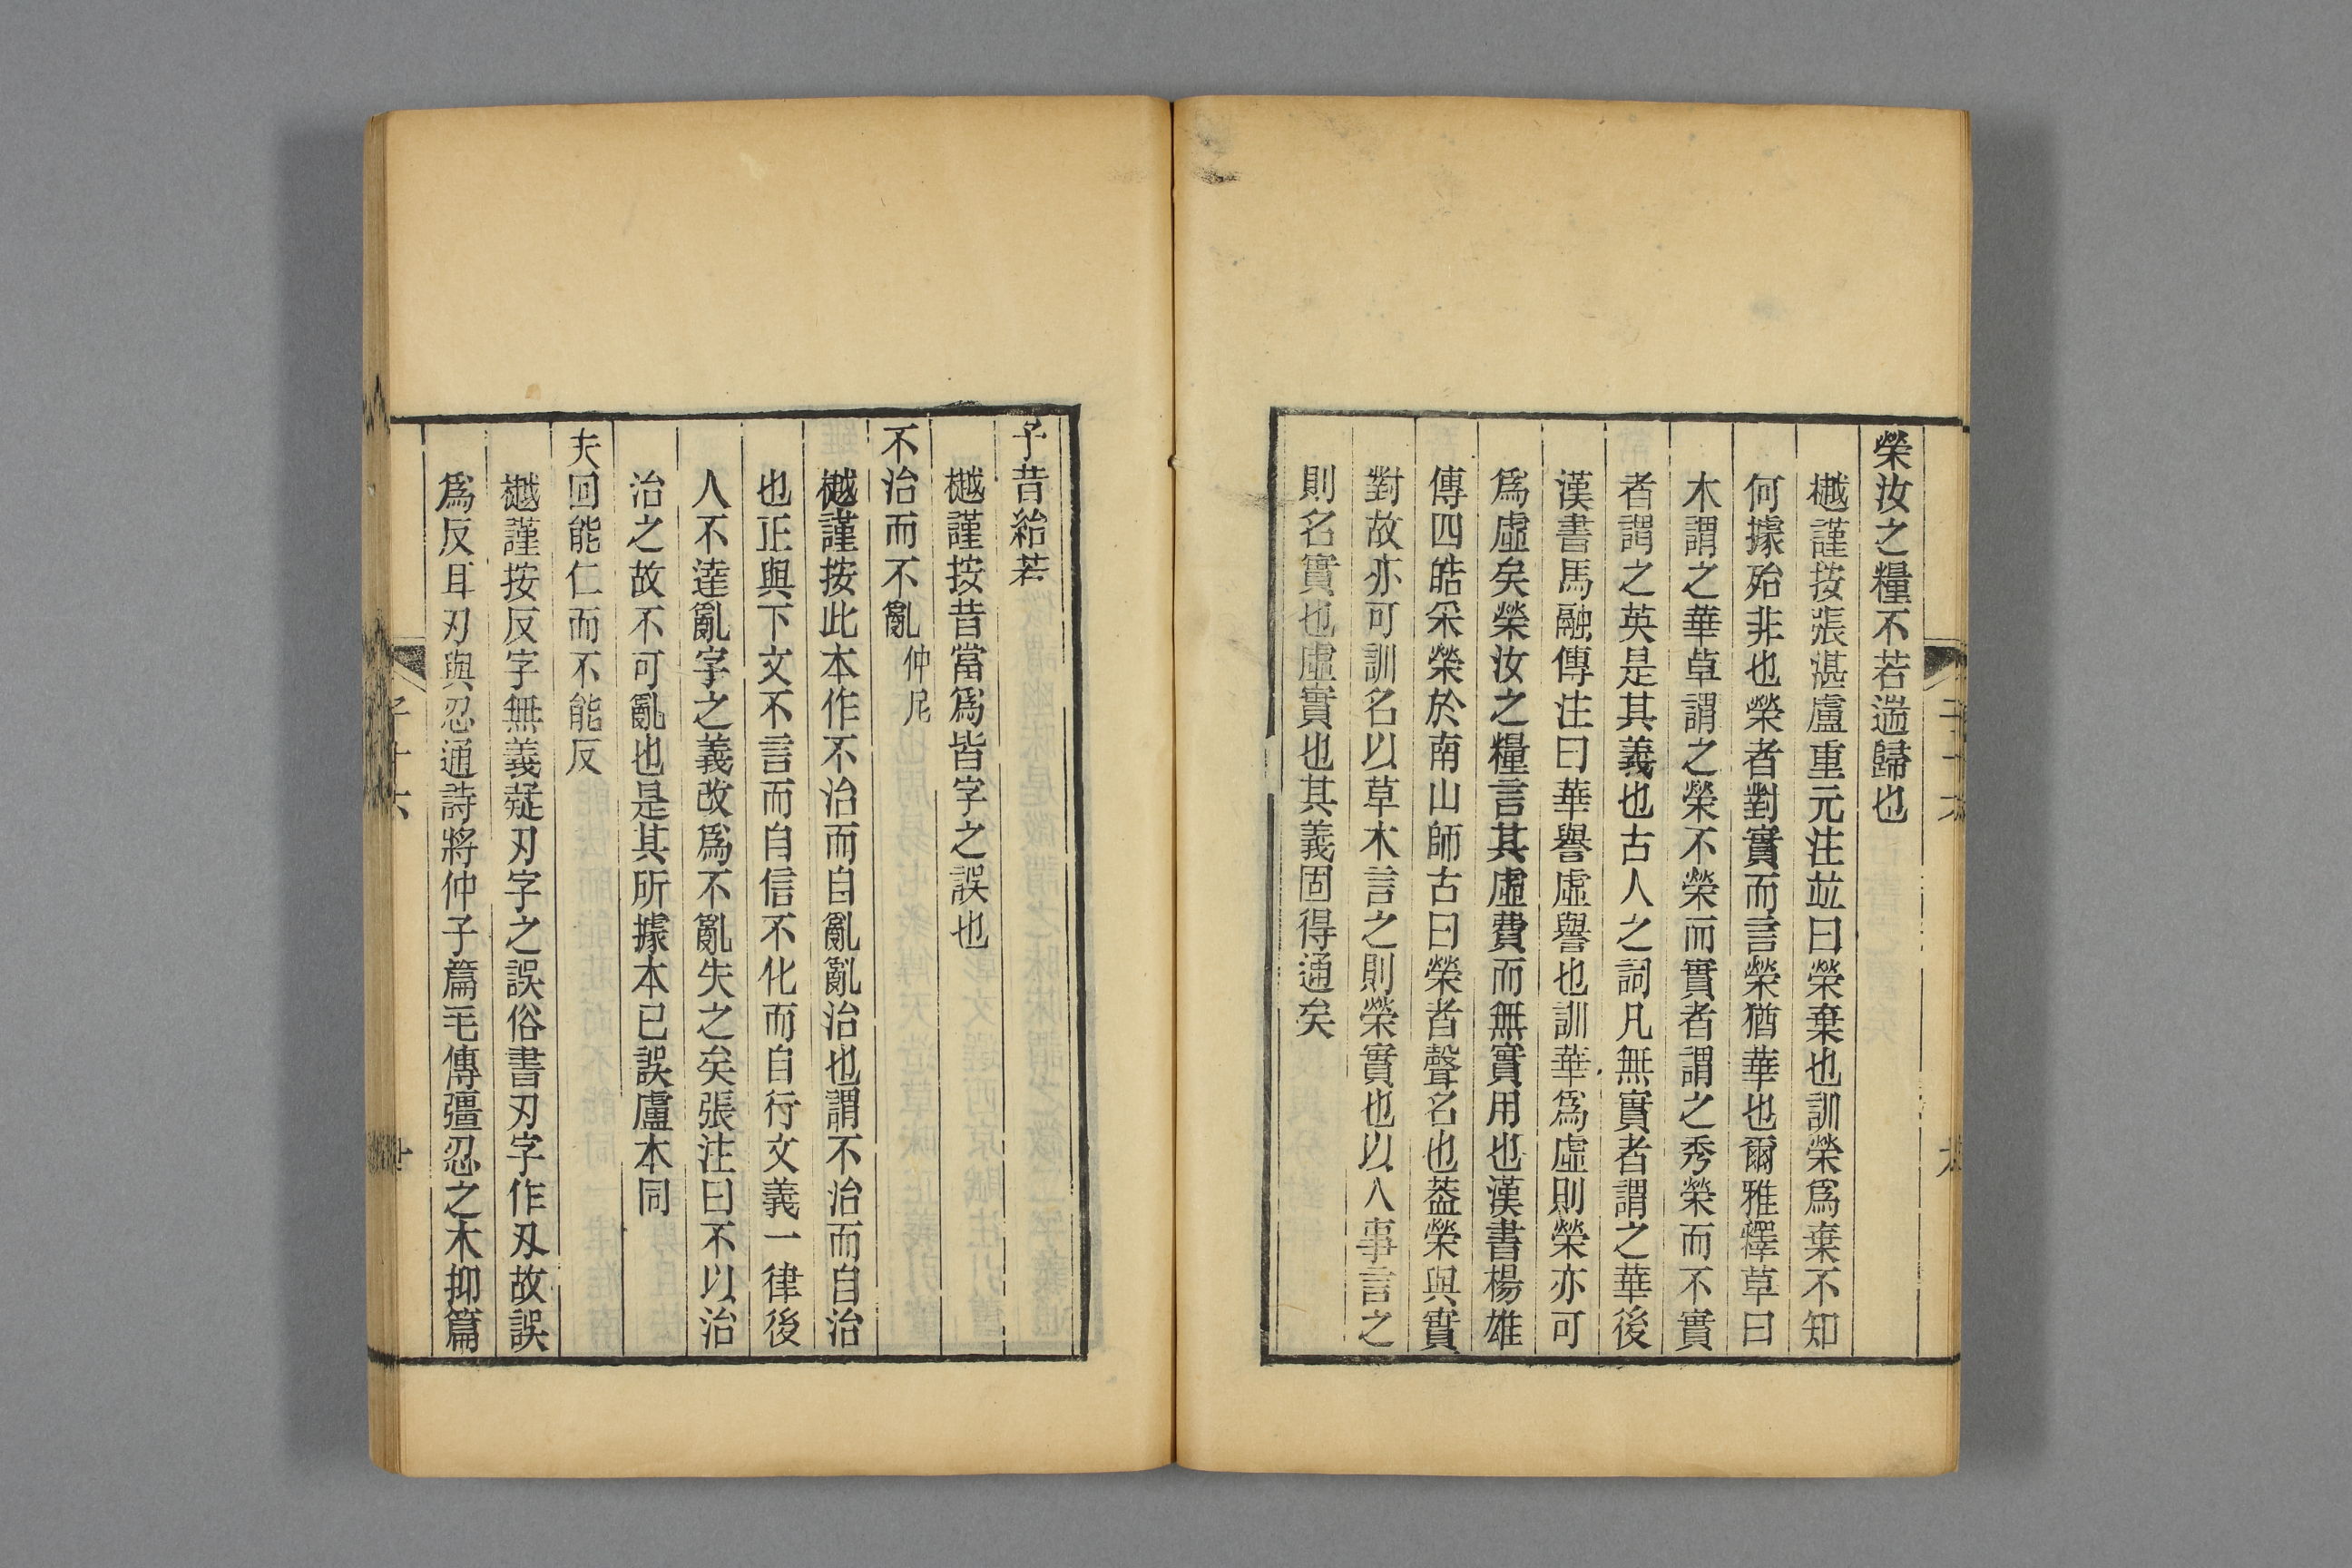 榮汝之糧不若遄歸也
樾謹按張湛盧重元注竝曰榮棄也訓榮爲棄不知
何據殆非也榮者對實而言榮猶華也爾雅釋草曰
木謂之華草謂之榮不榮而實者謂之秀榮而不實
者謂之英是其義也古人之詞凡無實者謂之華後
漢書馬融傳注曰華譽虛譽也訓華爲虛則榮亦可
爲虛矣榮汝之糧言其虛費而無實用也漢書楊雄
傳四皓采榮於南山師古曰榮者聲名也葢榮與實
對故亦可訓名以草木言之則榮實也以人事言之
則名實也虛實也其義固得通矣
子昔給若
樾謹按昔當爲皆字之誤也
不治而不亂 仲尼
樾謹按此本作不治而自亂亂治也謂不治而自治
也正與下文不言而自信不化而自行文義一律後
人不達亂字之義改爲不亂失之矣張注曰不以治
治之故不可亂也是其所據本已誤盧本同
夫回能仁而不能反
樾謹按反字無義疑刃字之誤俗書刃字作刄故誤
爲反耳刃與忍通詩將仲子篇毛傳彊忍之木抑篇